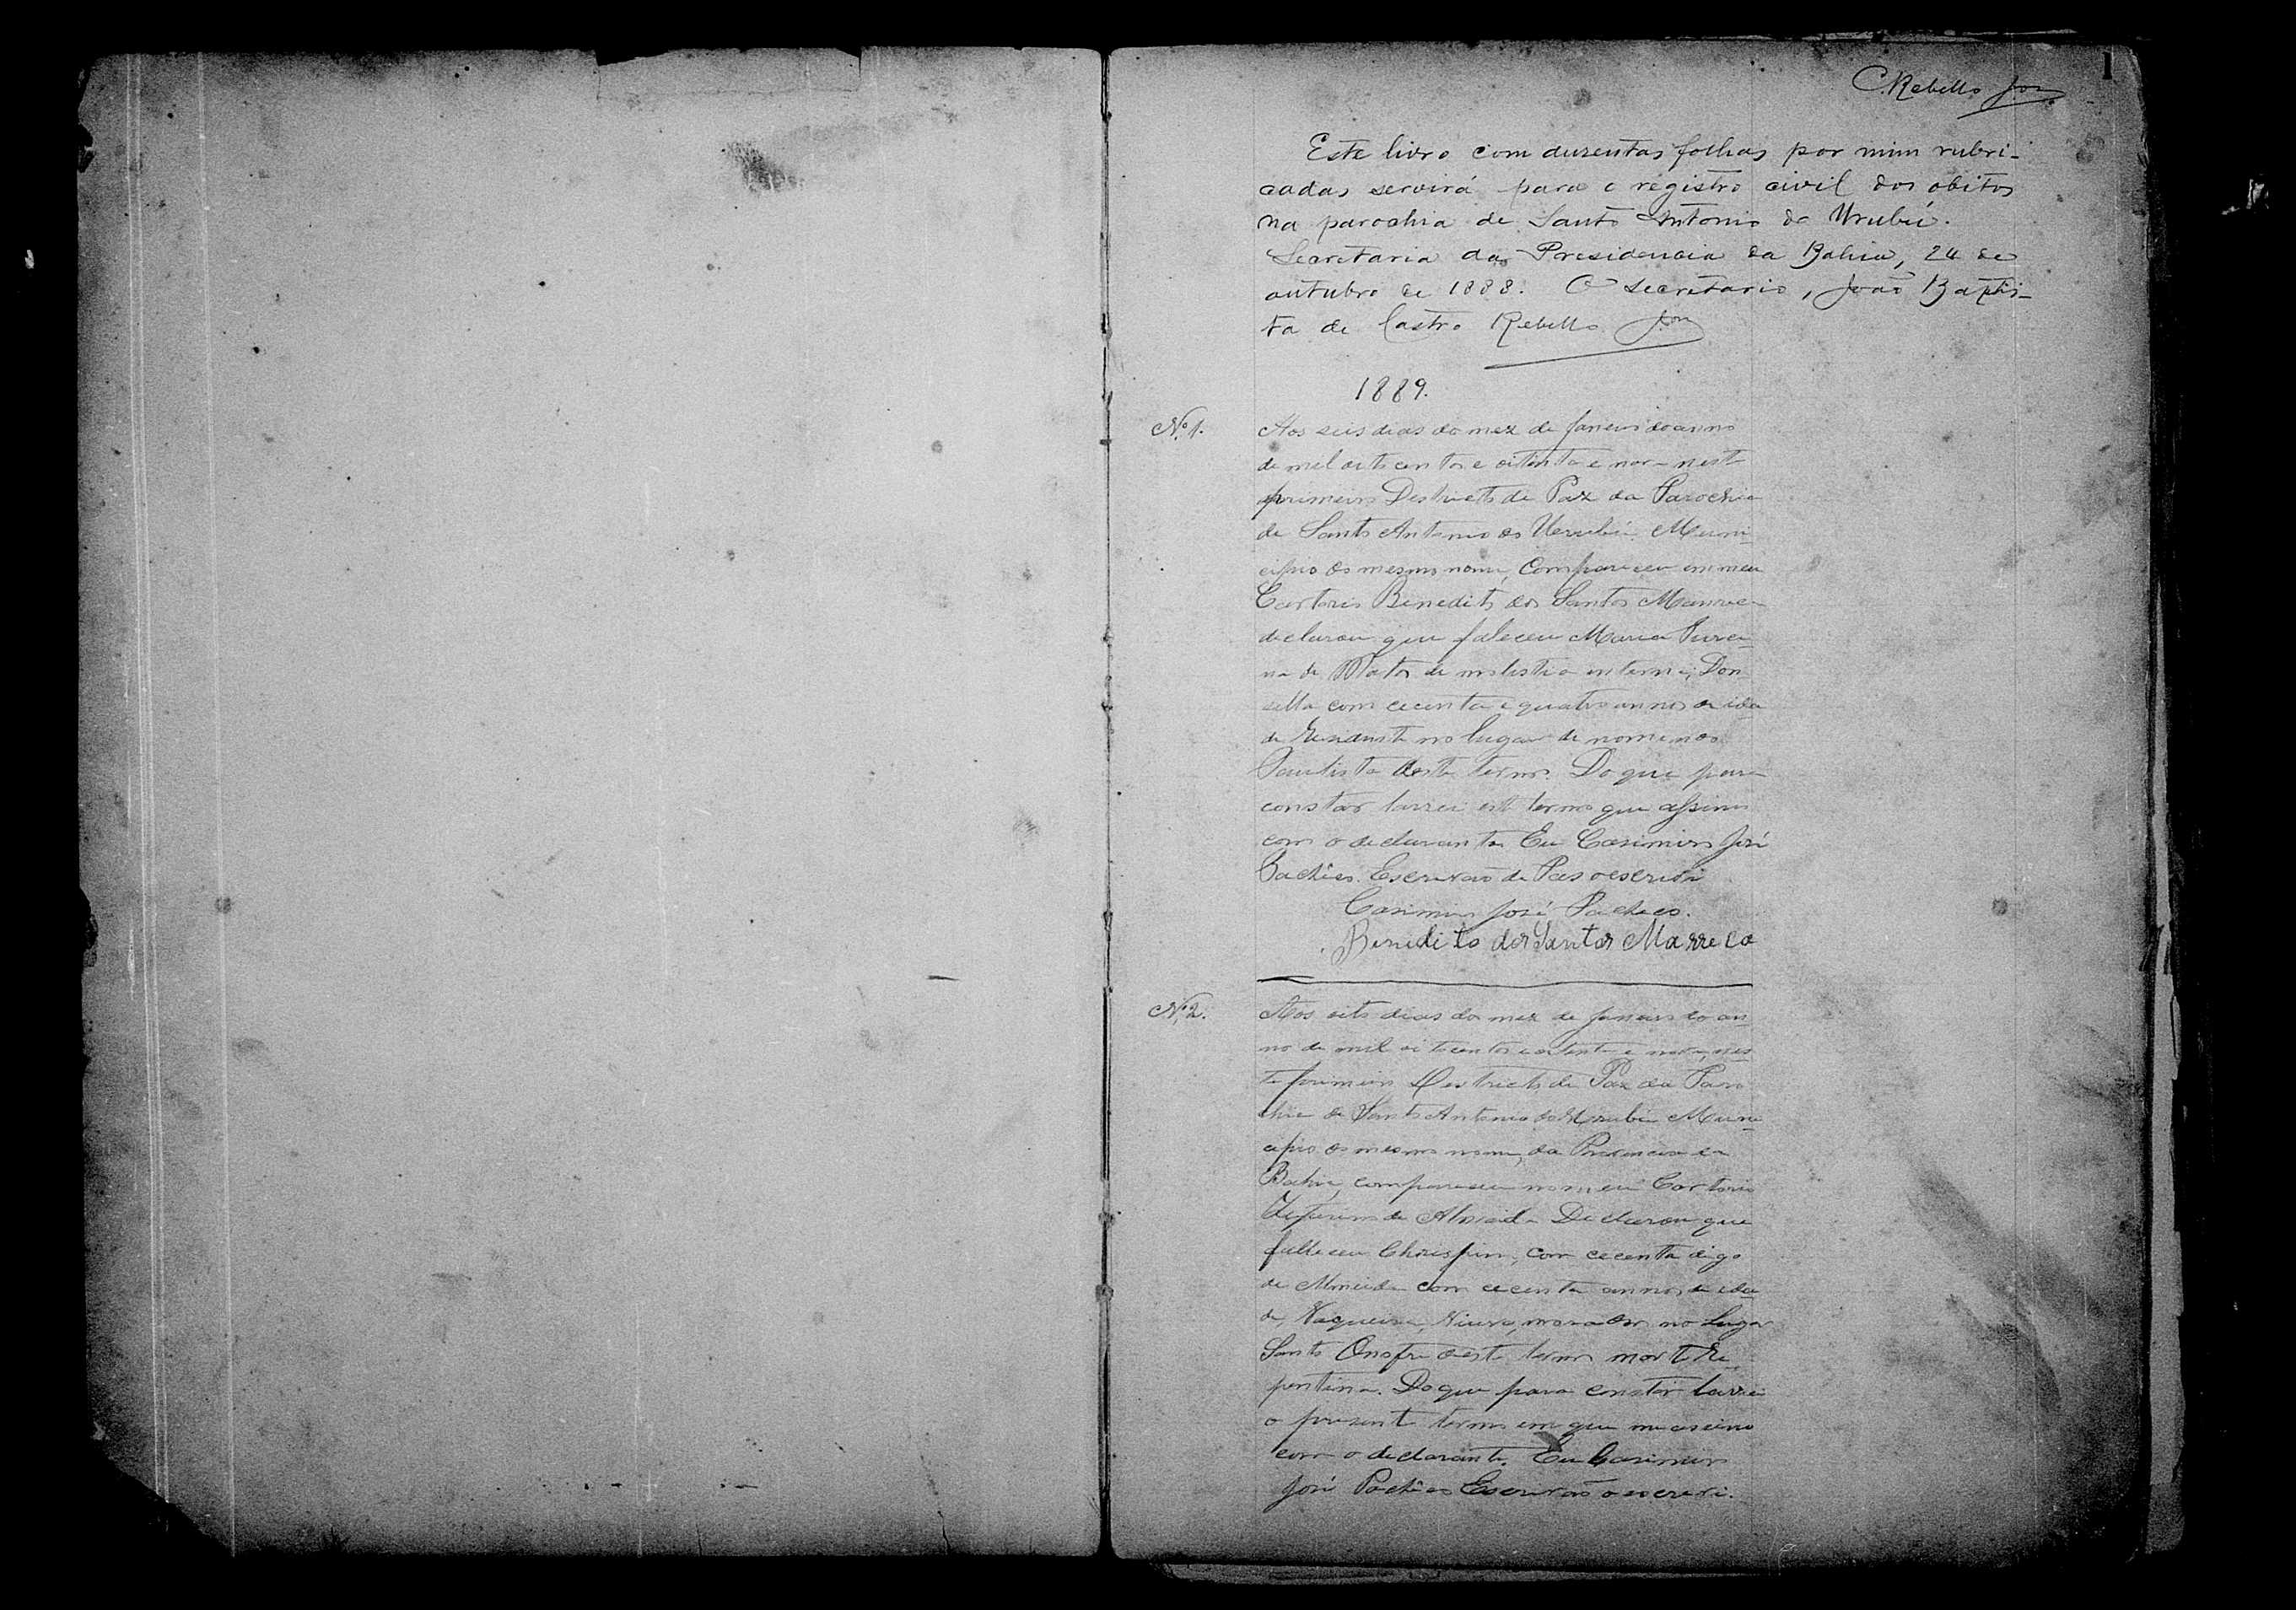 1
C. Rebello Jor
Este livro com duzentas folhas por mim rubri-
cadas servirá para o registro civil dos obitos
na parochia de Santo Antonio do Urubú.
Secretaria da Presidencia da Bahia, 24 de
outubro de 1888. O secretario, João Baptis-
ta de Castro Rebello Jor
1889.
Nº 1.
Aos seis dias do mez de Janeiro do anno
de mil oito centos e oitenta e nove nest
primeiro Destricto de Paz da Parochia
de Santo Antonio do Urubú Muni
cipio do mesmo nome, Compareceu em meu
Cartorio Benedito dos Santos Marreca
declarou que faleceu Maria
de Matos de molestia interna, Don
sella com cecenta e quatro annos de ida
de no lugar de nome
Paulista deste termo. Do que para
constar lavrei este termo que assino
com o declarante Eu Casimiro José
Pachêco. Escrivão de Pas o escrevi
Casimiro José Pacheco.
Benedito dos Santos Marreca
Nº 2.
Aos oito dias do mez de Janeiro do an
no de mil oitocentos e oitenta e nove, nes
te primeiro Destricto de Paz da Paro
chia de Santo Antonio do Urubú Muni
cipio do mesmo nome, da Provincia da
Bahia, compareceu no meu Cartorio
de Almeida Declarou que
falleceu Chrispim, com cecenta digo
de Almeida com cecenta annos de ida
de, Vaqueiro, Viuvo, morador no lugar
Santo Onofre deste termo morte Re
pentina. Do que para constar lavrei
o presente termo em que me assino
com o declarante. Eu Casimiro
José Pachêco Escrivão o escrevi.